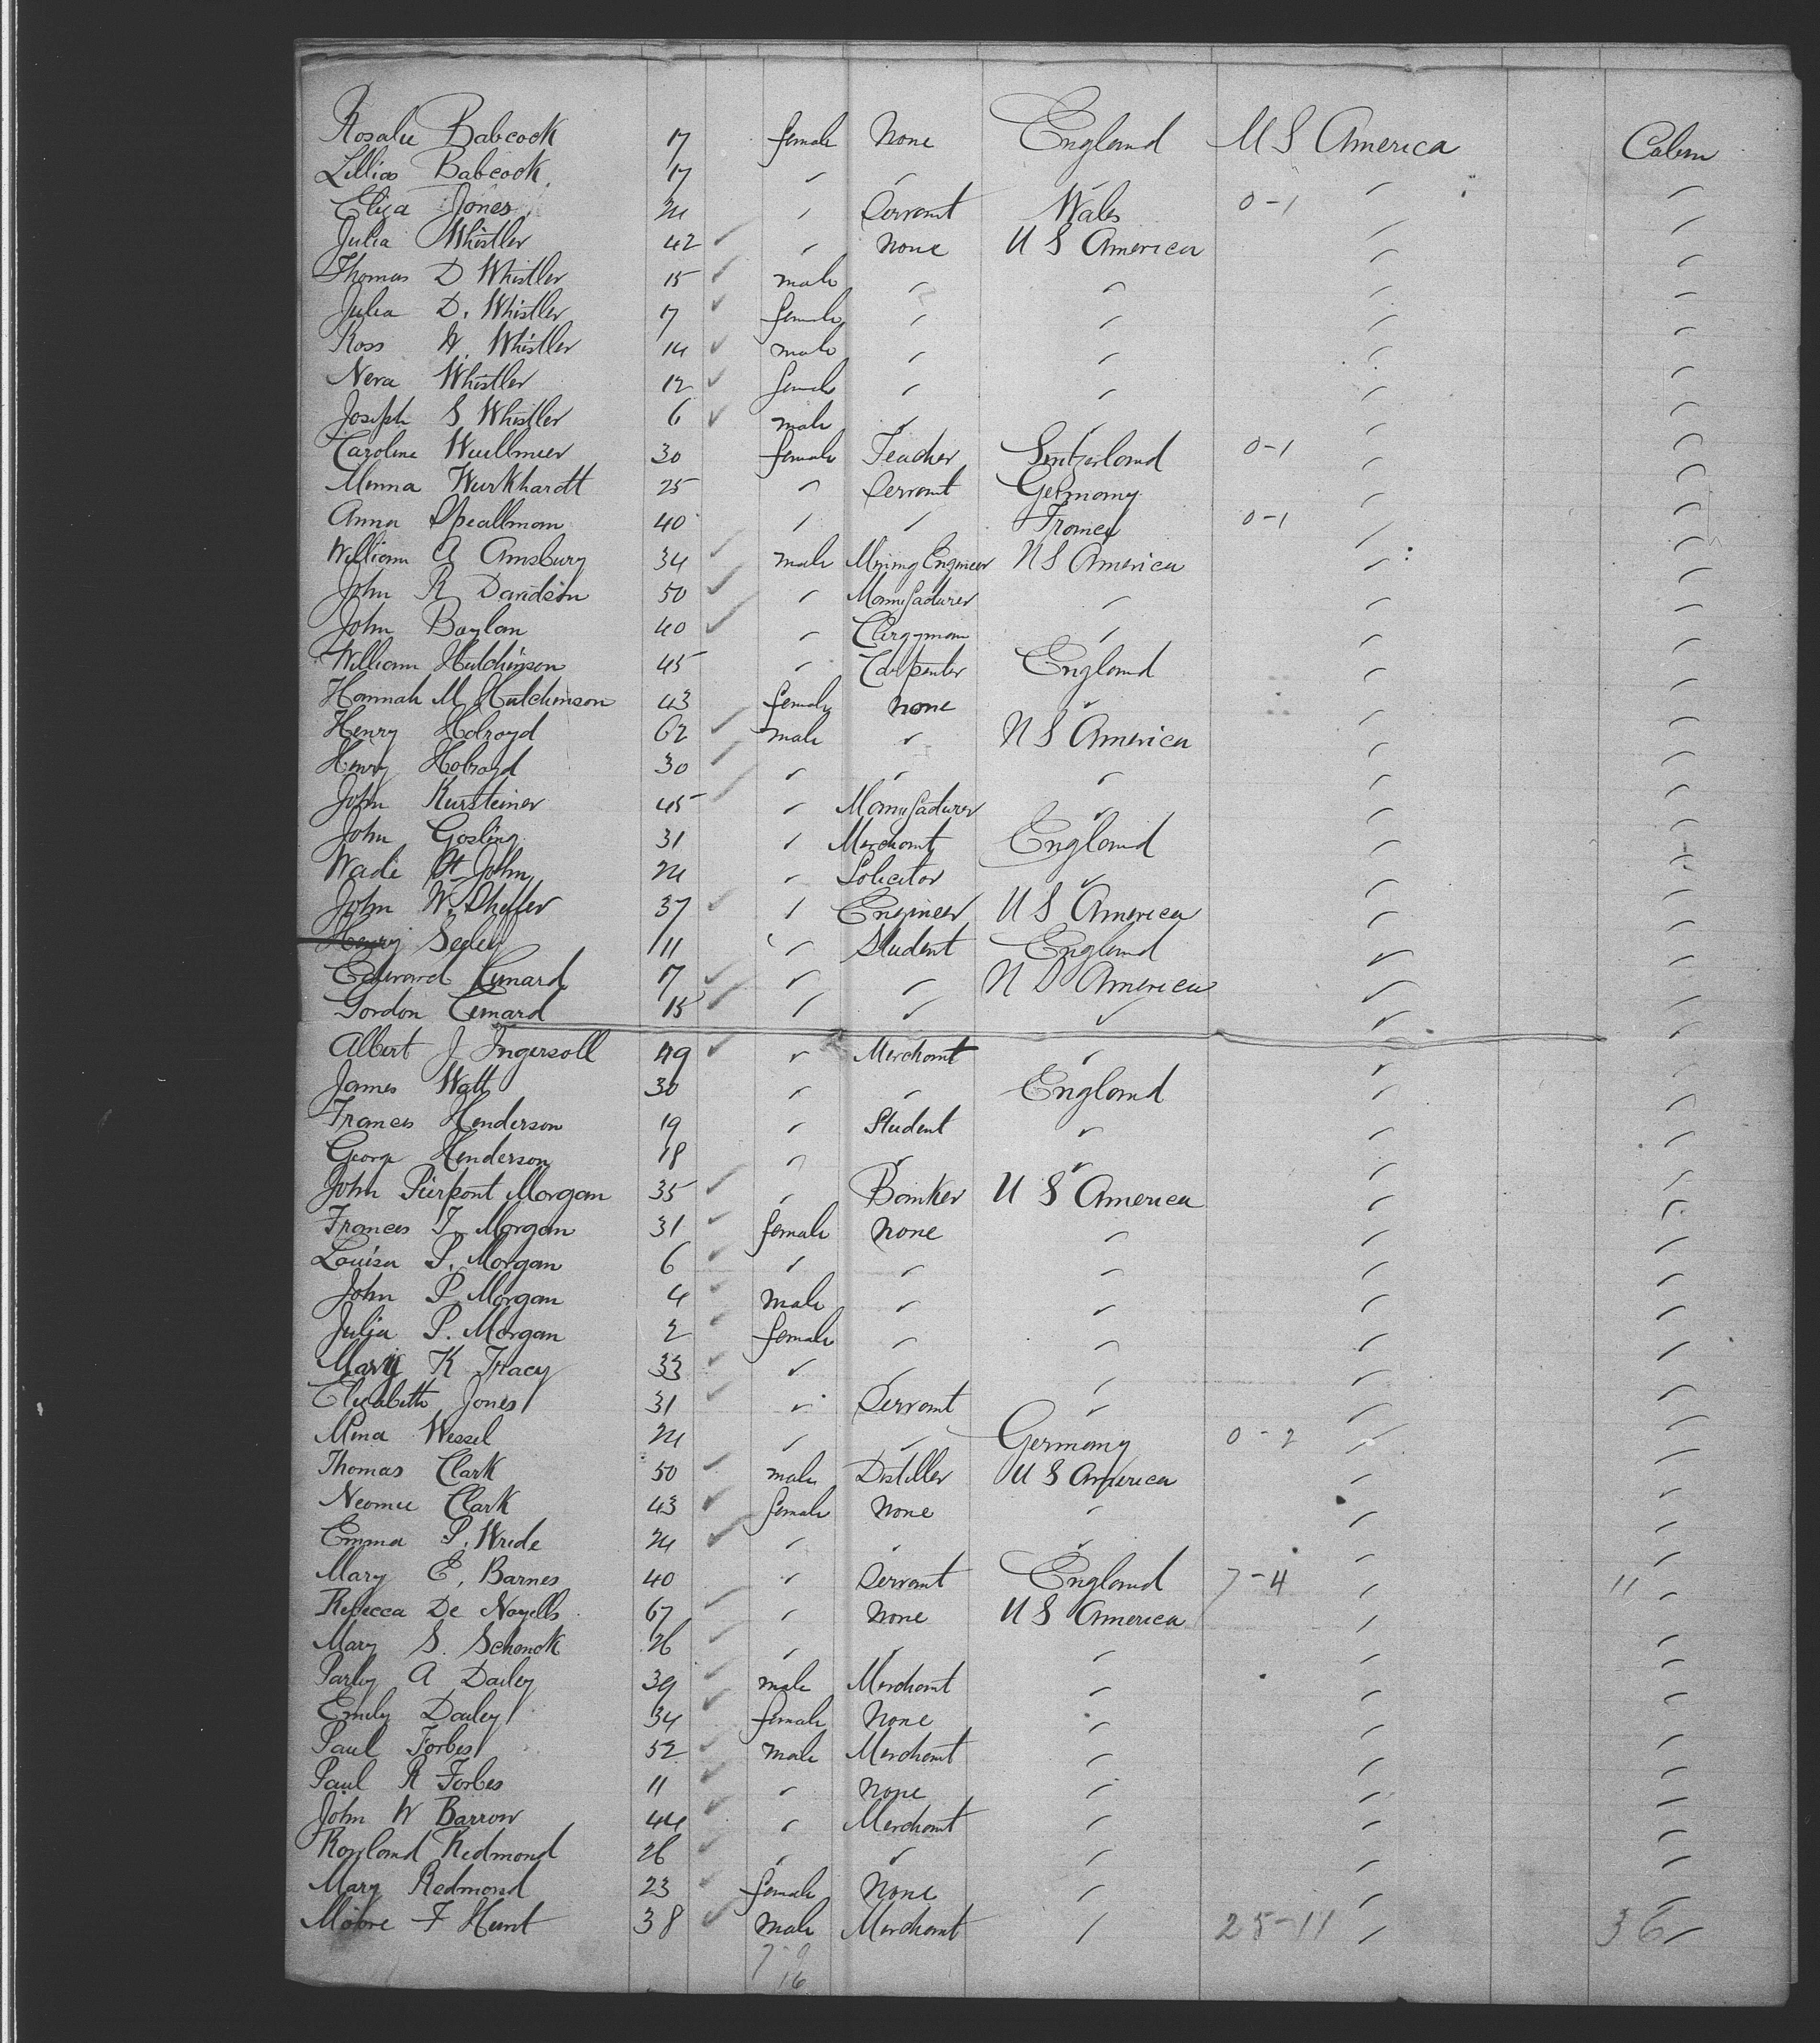 Rosalie Babcock 17 female None England U S America Cabin
Lillias Babcock 17 " " " " "
Eliza Jones 24 " Servant Wales 0-1 " "
Julia Whistler 42 ✓ " None U S America " "
Thomas D Whistler 15 ✓ male " " " "
Julia D. Whistler 17 ✓ female " " " "
Ross W. Whistler 14 ✓ male " " " "
Neva Whistler 12 ✓ female " " " "
Joseph S Whistler 6 ✓ male " " " "
Caroline Wuellmer 30 female Teacher Switzerland 0-1 " "
Minna Wurkhardt 25 " Servant Germany " "
Anna Speallman 40 " " France 0-1 " "
William A Amsbury 34 ✓ male Mining Engineer U S America " "
John R Davidson 50 ✓ " Manufacturer " " "
John Boylan 40 ✓ " Clergyman " " "
William Hutchinson 45 " Carpenter England " "
Hannah M Hutchinson 43 female None " " "
Henry Holroyd 62 ✓ male " U S America " "
Henry Holroyd 30 ✓ " " " " "
John Kursteiner 45 ✓ " Manufacturer " " "
John Gosling 31 " Merchant England " "
Wade St John 24 " Solicitor " " "
John W. Sheffer 37 ✓ " Engineer U S America " "
Henry Seeley 11 " Student England " "
Edward Cunard 17 ✓ " " U S America " "
Gordon Cunard 15 ✓ " " " " "
Albert J Ingersoll 49 ✓ " Merchant " " "
James Watt 30 " " England " "
Frances Henderson 19 " Student " " "
George Henderson 18 " " " " "
John Pierpont Morgan 35 ✓ " Banker U S America " "
Frances T. Morgan 31 ✓ female None " " "
Louisa P. Morgan 6 ✓ " " " " "
John P. Morgan 4 ✓ male " " " "
Julia P. Morgan 2 ✓ female " " " "
Mary K Tracy 33 ✓ " " " " "
Elizabeth Jones 31 ✓ " Servant " " "
Mina Wessel 24 " " Germany 0-2 " "
Thomas Clark 50 ✓ male Distiller U S America " "
Neomie Clark 43 ✓ female None " " "
Emma P. Wride 24 ✓ " " " " "
Mary E. Barnes 40 " Servant England 7-4 " 11 "
Rebecca De Noyells 67 ✓ " None U S America " "
Mary S. Schenck 26 ✓ " " " " "
Parley A Dailey 39 ✓ male Merchant " " "
Emily Dailey 34 ✓ female None " " "
Paul Forbes 52 ✓ male Merchant " " "
Paul R Forbes 11 ✓ " None " " "
John W Barrow 44 ✓ " Merchant " " "
Rowland Redmond 26 ✓ " " " " "
Mary Redmond 23 ✓ female None " " "
Moore F Hunt 38 ✓ male Merchant " 25-11 " 36 "
7 9
16